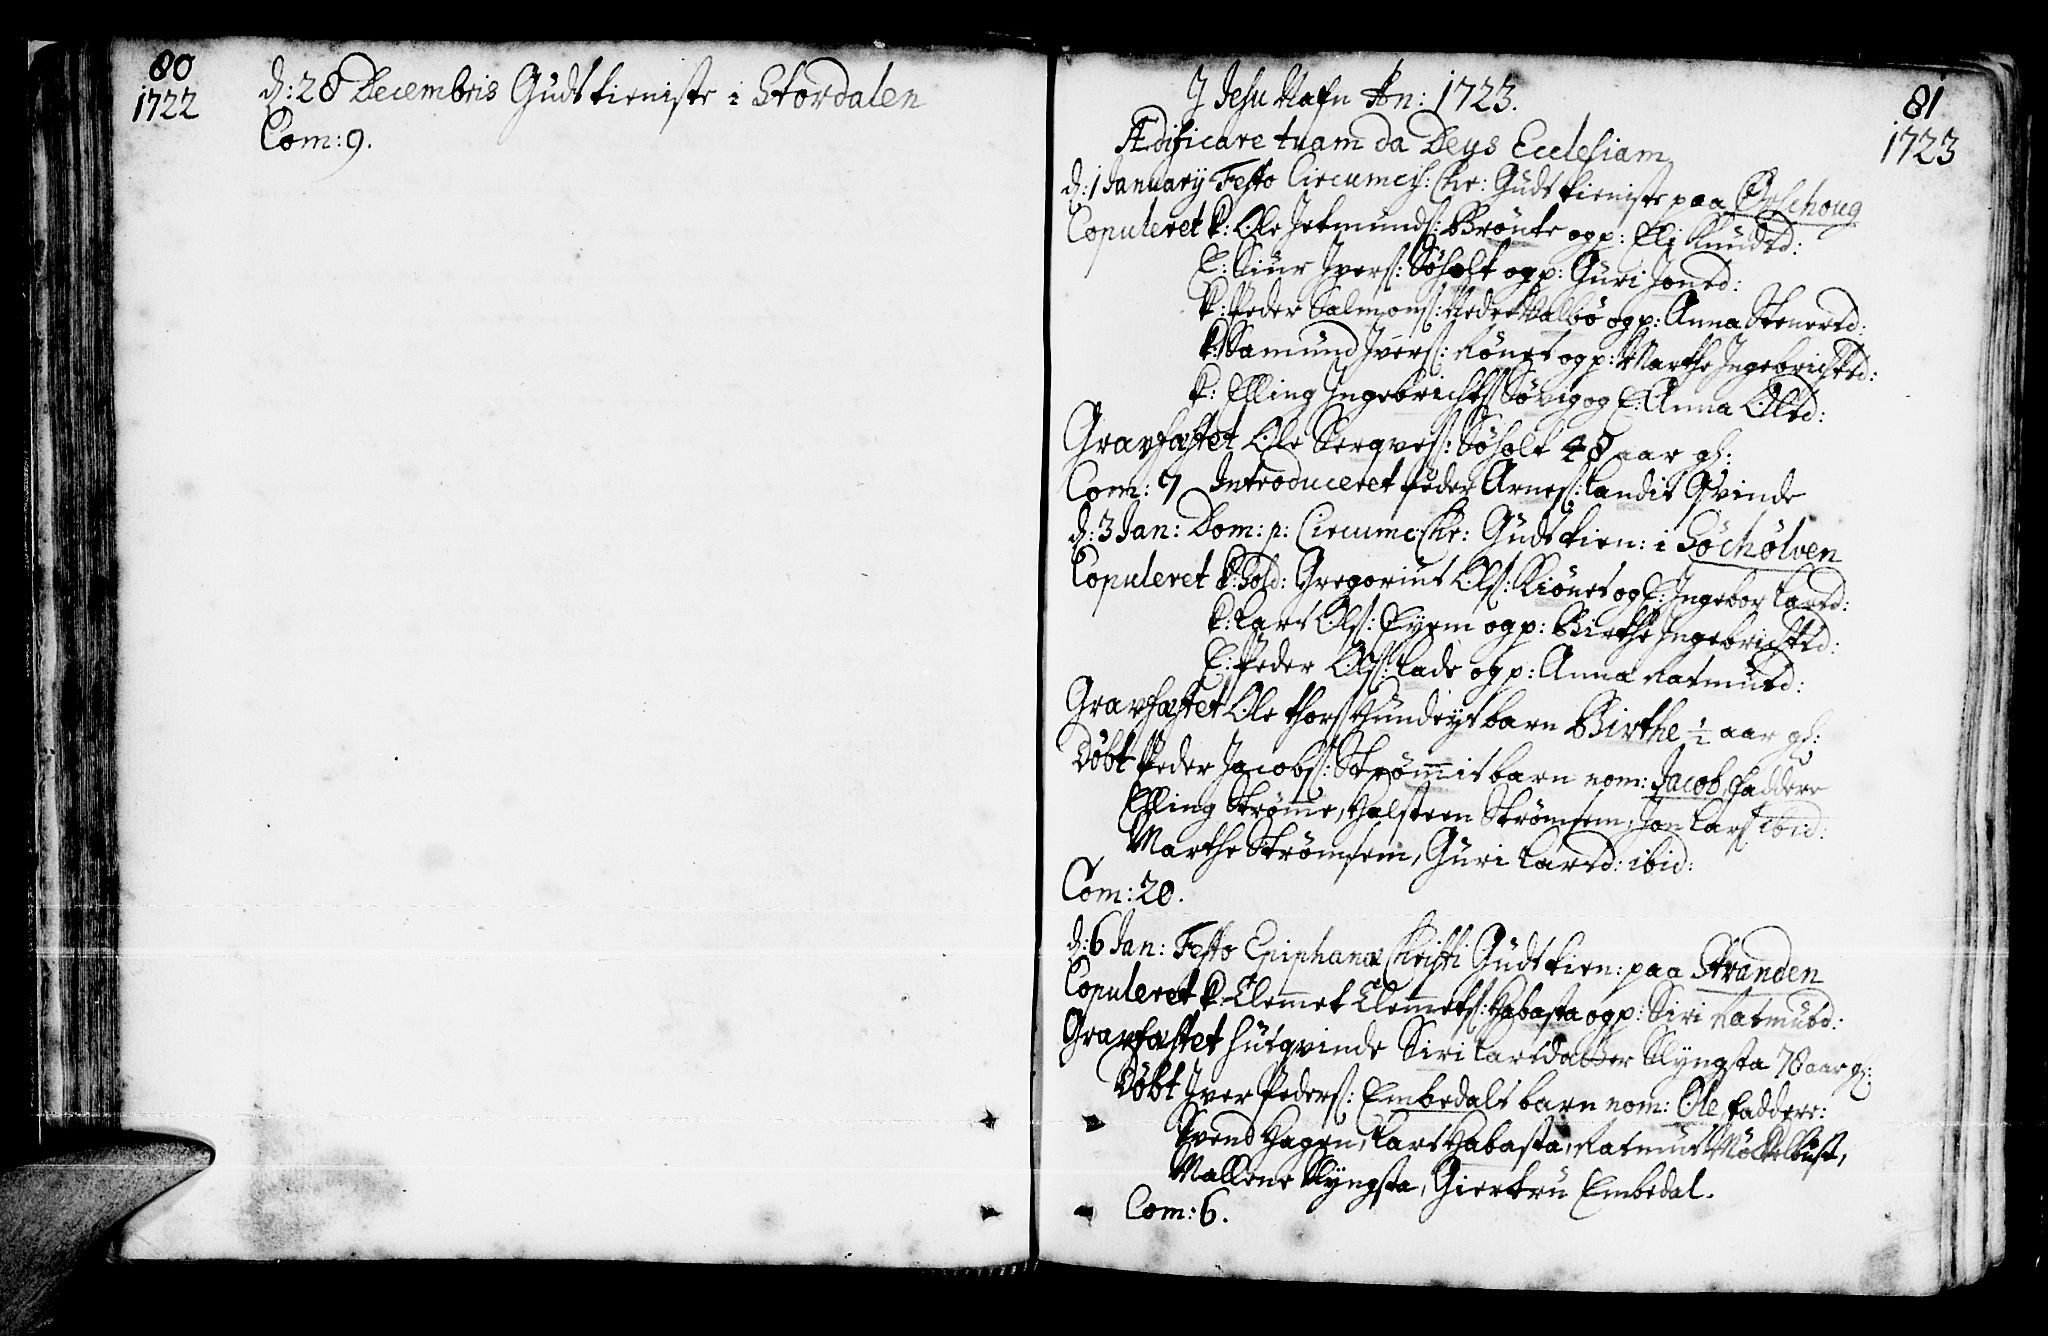 80
1722
d: 28 Decembris Gudstieniste i Stordalen
Com: 9.
J Jesu Nafn An: 1723.
81
1723
Ædificare tuam da Deus Ecclesiam
d: 1 January Festo Circumcis: Chr: Gudstieniste paa
Copuleret k: Ole Jetmunds: Brõute og p: Eli Knudsd:
E: Siur Ivers: Søholt og p: Guri Jonsd:
k: Peder Salmons: Nedre Walbø og p: Anna Stenersd:
k: Samund Ivers: Rõnes og p: Marthe Ingebrichtsd:
k: Elling Ingebrichts: Søvig og E: Anna Olsd:
Gravfæstet Ole Sergves: Søholt 48 aar gl:
Com: 7 Introduceret Peder Arnes: landis Qvinde
d: 3 Jan: Dom: p: Circumc: Chr: Guds tien: i Søchølven
Copuleret k: Sold: Gregorius Ols: Kiõnes og E: Ingebor Larsd:
k: Lars Ols: Eyem og p: Birthe Ingebrichtsd:
E: Peder Ols: Lade og p: Anna Rasmusd:
Gravfæstet Ole Thors: barn Birthe ½ aar gl:
Døbt Peder Jacobs: Strømmis barn nom: Jacob, faddere
Elling Strømme, Halsteen Strømsem, Jon Lars: ibid:
Marthe Strømsem, Guri Larsd: ibid:
Com: 20.
d: 6 Jan: Festo Epiphaniæ Christi Guds tien: paa Stranden
Copuleret k: Clemmet Clemmets: Habasta og p: Siri Rasmusd:
Gravfæstet Husqvinde Siri Larsdatter Slyngsta 70 aar gl:
Døbt Iver Peders: Embedals barn nom: Ole, faddere:
Svend Hagen, Lars Habasta, Rasmus Møckelbust,
Mallene Slyngsta, Giertru Embedal.
Com: 6.